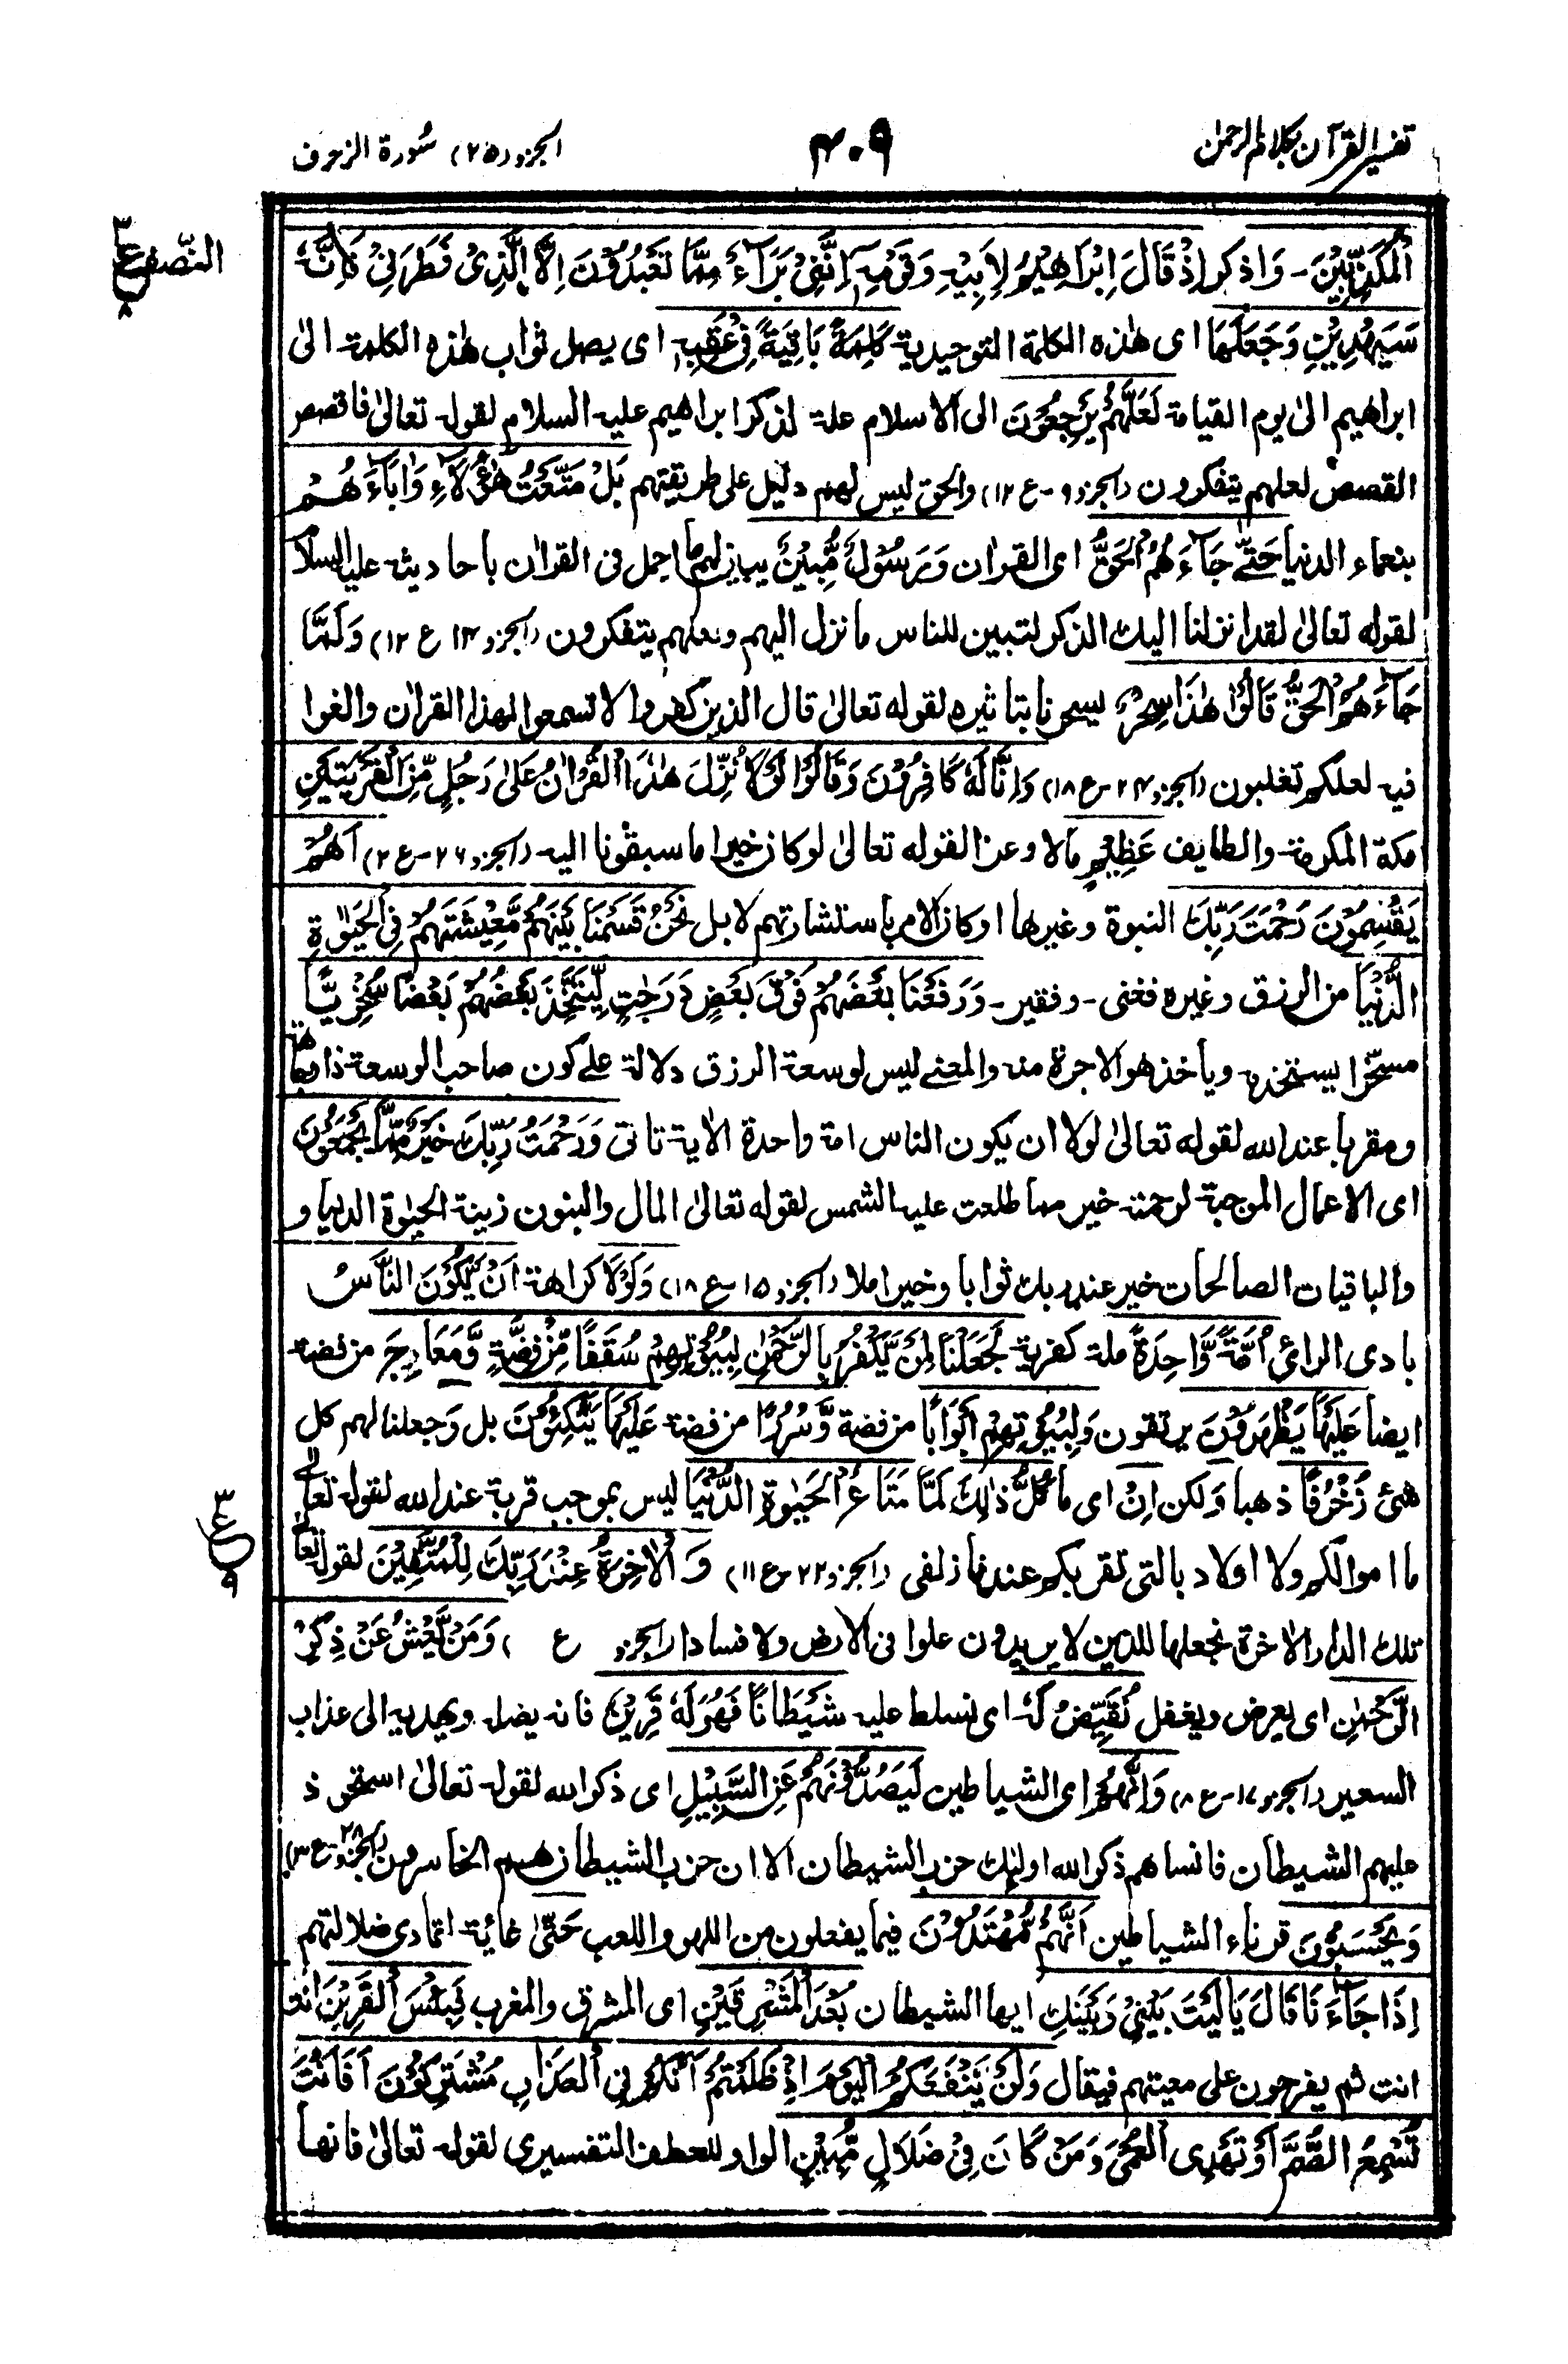 تفسير القرآن بكلام الرحمٰن
٤٠٩
الجزو (٢٥) سُورة الزخرف
النّصف
ع
٨
الْمُكَذِّبِيْنَ ـ وَاذكر اِذْ قَالَ اِبْرَاهِيْمُ لِاَبِيْهِ وَقَوْمِهٖ اِنَّنِيْ بَرَآءٌ مِمَّا تَعْبُدُوْنَ اِلَّا الَّذِيْ فَطَرَنِيْ فَاِنَّهٗ
سَيَهْدِيْنِ وَجَعَلَهَا اى هٰذه الكلمة التوحيدية كَلِمَةً بَاقِيَةً فِيْ عَقِبِهٖ اى يصل ثواب هٰذه الكلمة الىٰ
ابراهيم الىٰ يوم القيامة لَعَلَّهُمْ يَرْجِعُوْنَ الى الاسلام علة لذكر ابراهيم عليه السلام لقوله تعالىٰ فاقصص
القصص لعلهم يتفكرون (الجزو ٩ ـ ع ١٢) والحق ليس لهم دليل على طريقتهم بَلْ مَتَّعْتُ هٰؤُلَآءِ وَاٰبَآءَ هُمْ
بنعماء الدنيا حَتّٰى جَآءَ هُمُ الْحَقُّ اى القراٰن وَرَسُوْلٌ مُّبِيْنٌ يبين لهم ما اجمل فى القراٰن باحاديثه عليه السلام
لقوله تعالىٰ لقد انزلنا اليك الذكر لتبين للناس ما نزل اليهم ولعلهم يتفكرون (الجزو ١٤ ع ١٢) وَلَمَّا
جَآءَ هُمُ الْحَقُّ قَالُوْا هٰذَا سِحْرٌ يسحرنا بتاثيره لقوله تعالىٰ قال الذين كفروا لا تسمعوا لهذا القراٰن والغوا
فيه لعلكم تغلبون (الجزو ٢٤ ـ ع ١٨) وَاِنَّا لَهٗ كَافِرُوْنَ وَقَالُوْا لَوْلَا نُزِّلَ هٰذَا الْقُرْاٰنُ عَلىٰ رَجُلٍ مِّنَ الْقَرْيَتَيْنِ
مكة المكرمة والطايف عَظِيْمٍ مالا وعزا لقوله تعالىٰ لو كان خيرا ما سبقونا اليه (الجزو ٢٦ ـ ع ٢) اَهُمْ
يَقْسِمُوْنَ رَحْمَتَ رَبِّكَ النبوة وغيرها اوكان الامر باستشارتهم لا بل نَحْنُ قَسَمْنَا بَيْنَهُمْ مَّعِيْشَتَهُمْ فِي الْحَيٰوةِ
الدُّنْيَا من الرزق وغيره فغنى ـ وفقير ـ وَرَفَعْنَا بَعْضَهُمْ فَوْقَ بَعْضٍ دَرَجٰتٍ لِّيَتَّخِذَ بَعْضُهُمْ بَعْضًا سُخْرِيًّا
مسخّرا يستخذمه ويأخذ هو الاجرة منه والمعنے ليس لوسعة الرزق دلالة علے كون صاحب الوسعة ذا وجاهة
ومقربا عند الله لقوله تعالىٰ لولا ان يكون الناس امة واحدة الاٰية تاتى وَرَحْمَتُ رَبِّكَ خَيْرٌ مِّمَّا يَجْمَعُوْنَ
اى الاعمال الموجبة لرحمته خير مما طلعت عليه الشمس لقوله تعالىٰ المال والبنون زينة الحيٰوة الدنيا و
والباقيات الصالحات خير عند ربك ثوابا وخير املا (الجزو ١٥ ـ ع ١٨) وَلَوْلَا كراهة اَنْ يَّكُوْنَ النَّاسُ
بادى الرائ اُمَّةً وَّاحِدَةً ملة كفرية لَجَعَلْنَا لِمَنْ يَّكْفُرُ بِالرَّحْمٰنِ لِبُيُوْتِهِمْ سُقُفًا مِّنْ فِضَّةٍ وَّمَعَارِجَ من فضة
ايضا عَلَيْهَا يَظْهَرُوْنَ يرتقون وَلِبُيُوْتِهِمْ اَبْوَابًا من فضة وَّسُرُرًا من فضة عَلَيْهَا يَتَّكِئُوْنَ بل وجعلنا لهم كل
شئ زُخْرُفًا ذهبا وَلكن اِنْ اى ما كُلُّ ذٰلِكَ لَمَّا مَتَاعُ الْحَيٰوةِ الدُّنْيَا ليس بموجب قربة عند الله لقوله تعالىٰ
ع
٩
ما اموالكم ولا اولادكم بالتى تقربكم عندنا زلفى (الجزو ٢٢ ـ ع ١١) وَالْاٰخِرَةُ عِنْدَ رَبِّكَ لِلْمُتَّقِيْنَ لقوله تعالىٰ
تلك الدار الاٰخرة نجعلها للذين لا يريدون علوا فى الارض ولا فسادا (الجزو ع ) وَمَنْ يَّعْشُ عَنْ ذِكْرِ
الرَّحْمٰنِ اى يعرض ويغفل نُقَيِّضْ لَهٗ اى نسلط عليه شَيْطَانًا فَهُوَ لَهٗ قَرِيْنٌ فانه يضله ويهديه الى عذاب
السعير (الجزو ١٧ ـ ع ٨) وَاِنَّهُمْ اى الشياطين لَيَصُدُّوْنَهُمْ عَنِ السَّبِيْلِ اى ذكر الله لقوله تعالىٰ استحوذ
عليهم الشيطان فانساهم ذكر الله اولٰئك حزب الشيطان الا ان حزب الشيطان هم الخاسرون (الجزو ٢٨ ـ ع ٣)
وَيَحْسَبُوْنَ قرناء الشياطين اَنَّهُمْ مُّهْتَدُوْنَ فيما يفعلون من اللهو واللعب حَتّٰى غائية اتمادى ضلالتهم
اِذَا جَآءَ نَا قَالَ يَا لَيْتَ بَيْنِيْ وَبَيْنَكَ ايها الشيطان بُعْدَ الْمَشْرِقَيْنِ اى المشرق والمغرب فَبِئْسَ الْقَرِيْنُ انت
انت ثم يفرحون على معيتهم فيقال وَلَنْ يَّنْفَعَكُمُ الْيَوْمَ اِذْ ظَلَمْتُمْ اَنَّكُمْ فِي الْعَذَابِ مُشْتَرِكُوْنَ اَفَاَنْتَ
تُسْمِعُ الصُّمَّ اَوْ تَهْدِى الْعُمْيَ وَمَنْ كَانَ فِيْ ضَلَالٍ مُّبِيْنٍ الواو للعطف التفسيرى لقوله تعالىٰ فانها